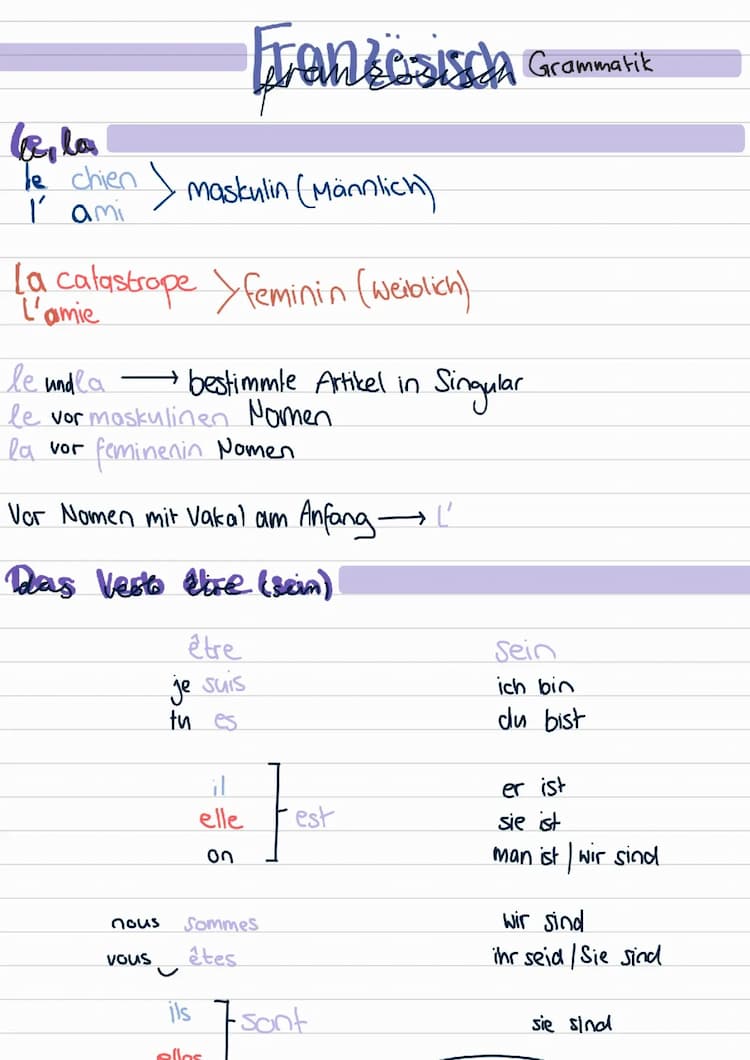 Französisch Grammatik
französisch
le, la
le chien
l' ami
> maskulin (Männlich)
la catastrope
L'amie
> feminin (weiblich)
le und la → bestimmte Artikel in Singular
le vor maskulinen Nomen
la vor feminenin Nomen
Vor Nomen mit Vakal am Anfang → L'
Das Verb être (sein)
être sein
je suis ich bin
tu es du bist
il er ist
elle est sie ist
on man ist | wir sind
nous sommes wir sind
vous êtes ihr seid / Sie sind
ils sont sie sind
elles